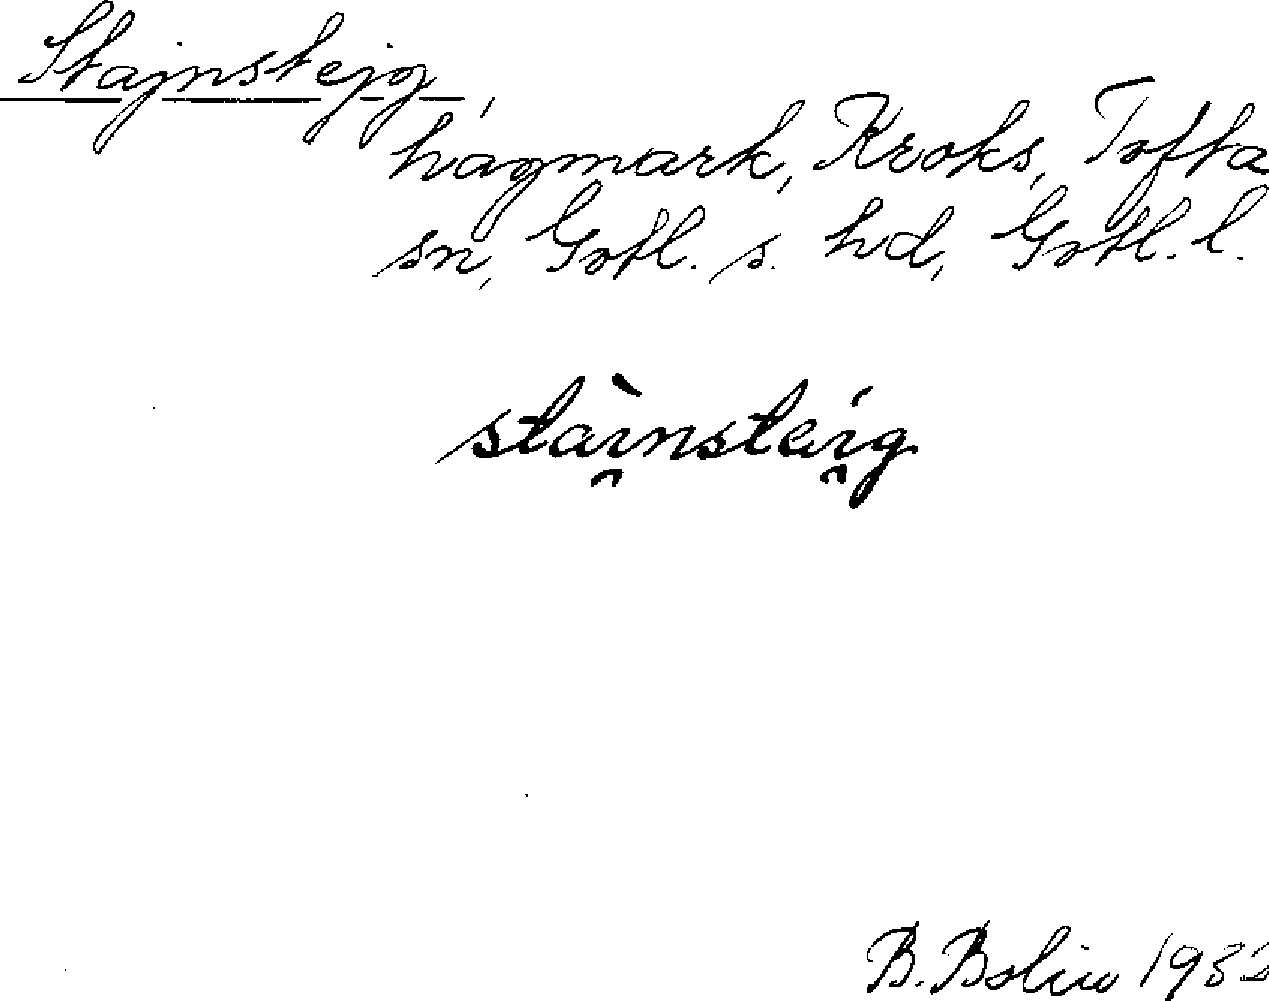 Stajnstejg,
hagmark, Kroks, Tofta
sn, Gotl. s. hd, Gotl. l.
stài̯nstéi̯g
B. Bolin 1932